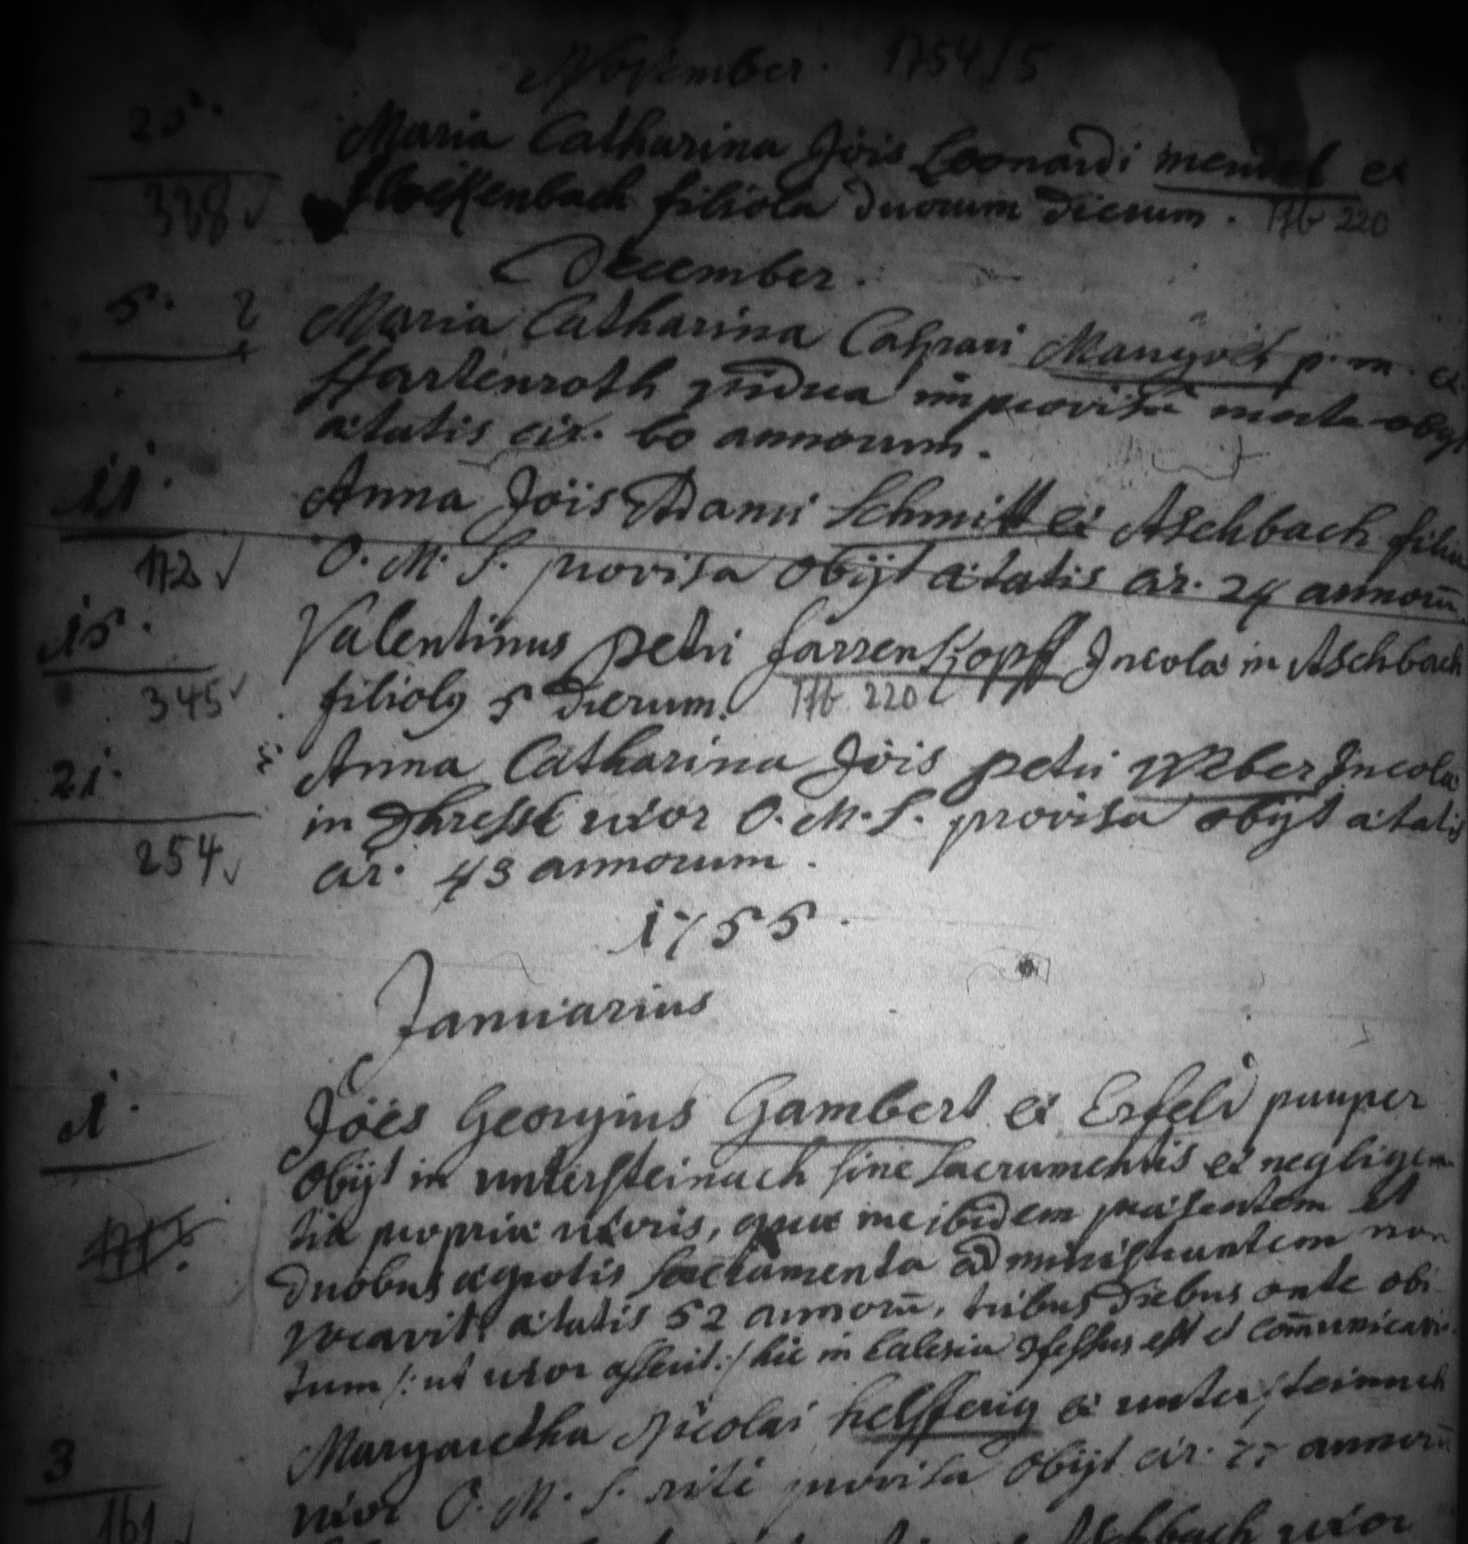 November. 1754/5
25.
Maria Catharina Jöis Leonardi mendel ex
338 flockenbach filiola duorum dierum. 176 220
December.
5. 2 Maria Catharina Caspari p. m. ex
Hartenroth vidua improvisa morte obijt
ætatis cir. 60 annorum.
11. Anna Jöis Adami Schmitt ex Aschbach filia
172 O. M. S. provisa obijt ætatis cir. 24 annorū
15. Valentinus petri farrenkopff Incolæ in Aschbach
345 filiolq 5 dierum. 176 220
21. Anna Catharina Jöis petri Weber Incolæ
in uxor O. M. S. provisa obijt ætatis
254 cir. 43 annorum.
1755.
Januarius
1. Jöes Georgius Gambert ex Erfeld pauper
obijt in untersteinach sine sacramentis ex negligen
tia propriæ uxoris, quæ me ibidem præsentem et
duobus ægrotis sacramenta administrantem non
vocavit. ætatis 52 annorū, tribus diebus ante obi
tum /: ut uxor asserit :/ hic in Eclesia 9fessus est et com̄unicavi
3 Margaretha Nicolai helfferig ex untersteinach
161 uxor O. M. S. rite provisa obijt cir. 77 annorū
Aschbach uxor